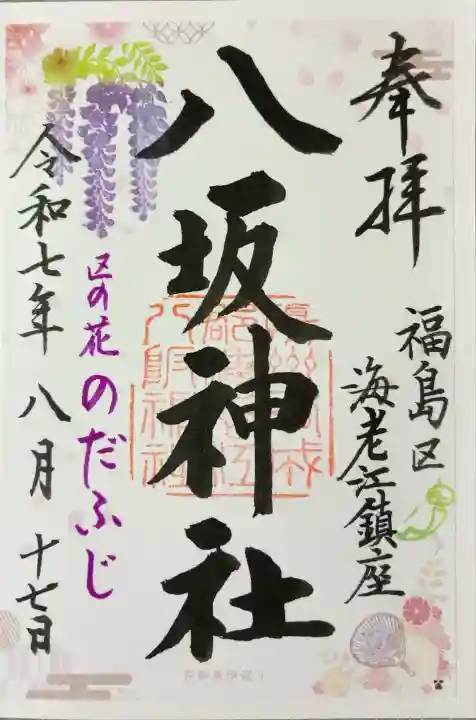 奉拝
福島区
海老江鎮座
八坂神社
区の花 のだふじ
令和七年 八月 十七日